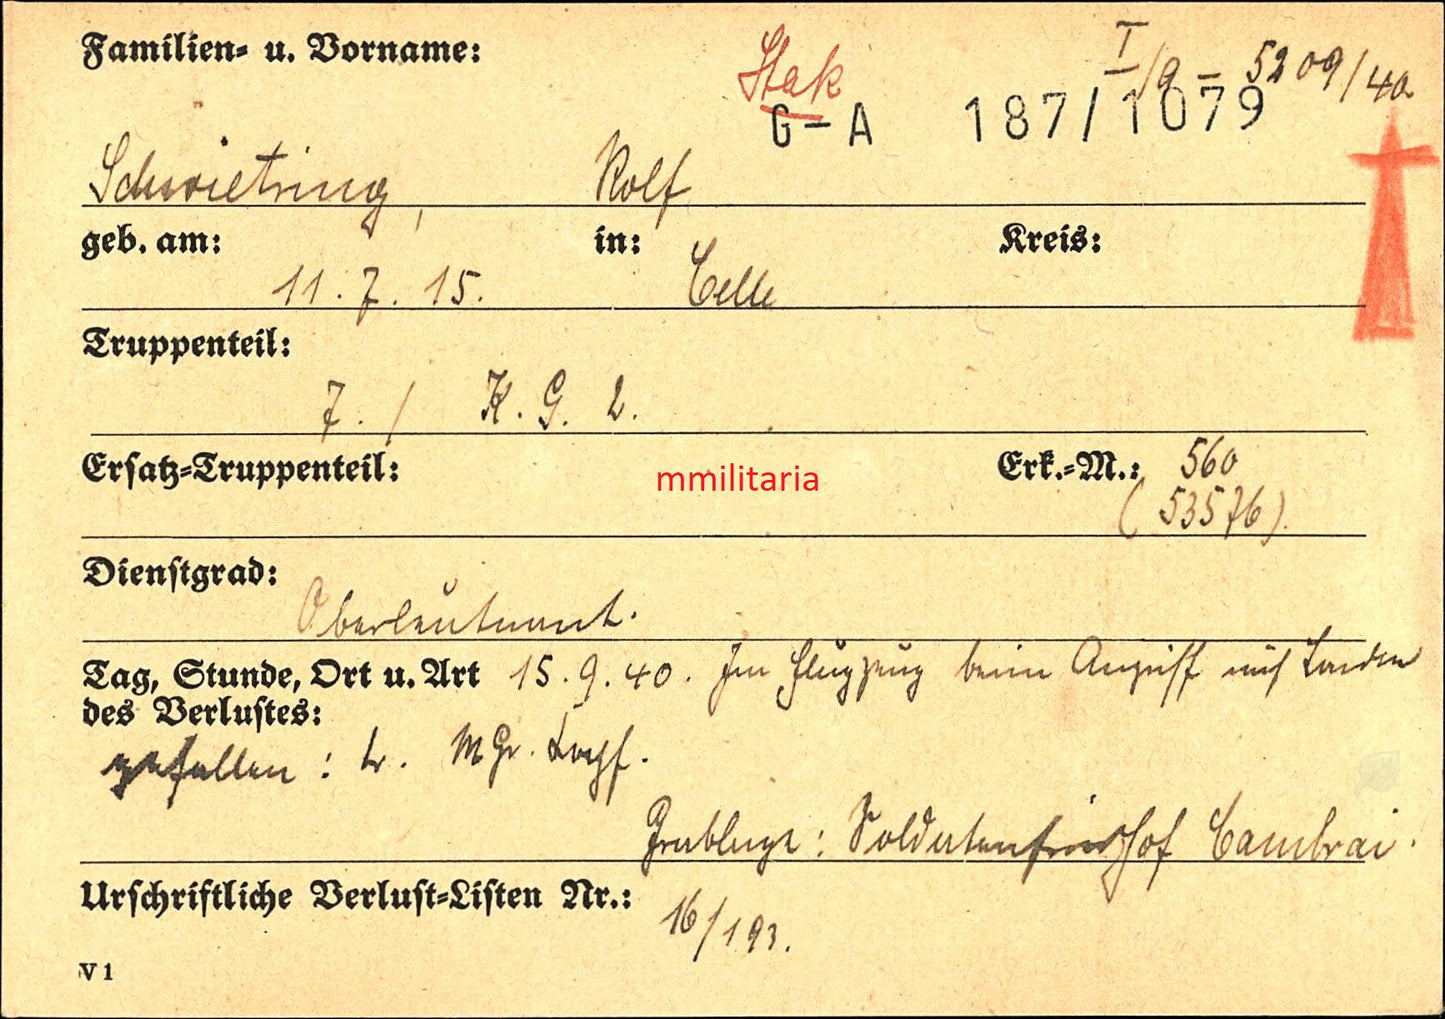 Familien- u. Vorname:
Stak
I/9 - 5209/40
G-A 187/1079
Schwietring, Rolf
geb. am: in: Kreis:
11. 7. 15. Celle
Truppenteil:
7. / K. G. 2.
Ersatz-Truppenteil: Erk.-M.: 560
mmilitaria
(53576).
Dienstgrad:
Oberleutnant.
Tag, Stunde, Ort u. Art 15.9.40. Im Flugzeug beim Angriff auf London
des Verlustes:
gefallen: tr. M Gr. Kopf.
Grablage: Soldatenfriedhof Cambrai.
Urschriftliche Verlust-Listen Nr.:
16/193.
V 1